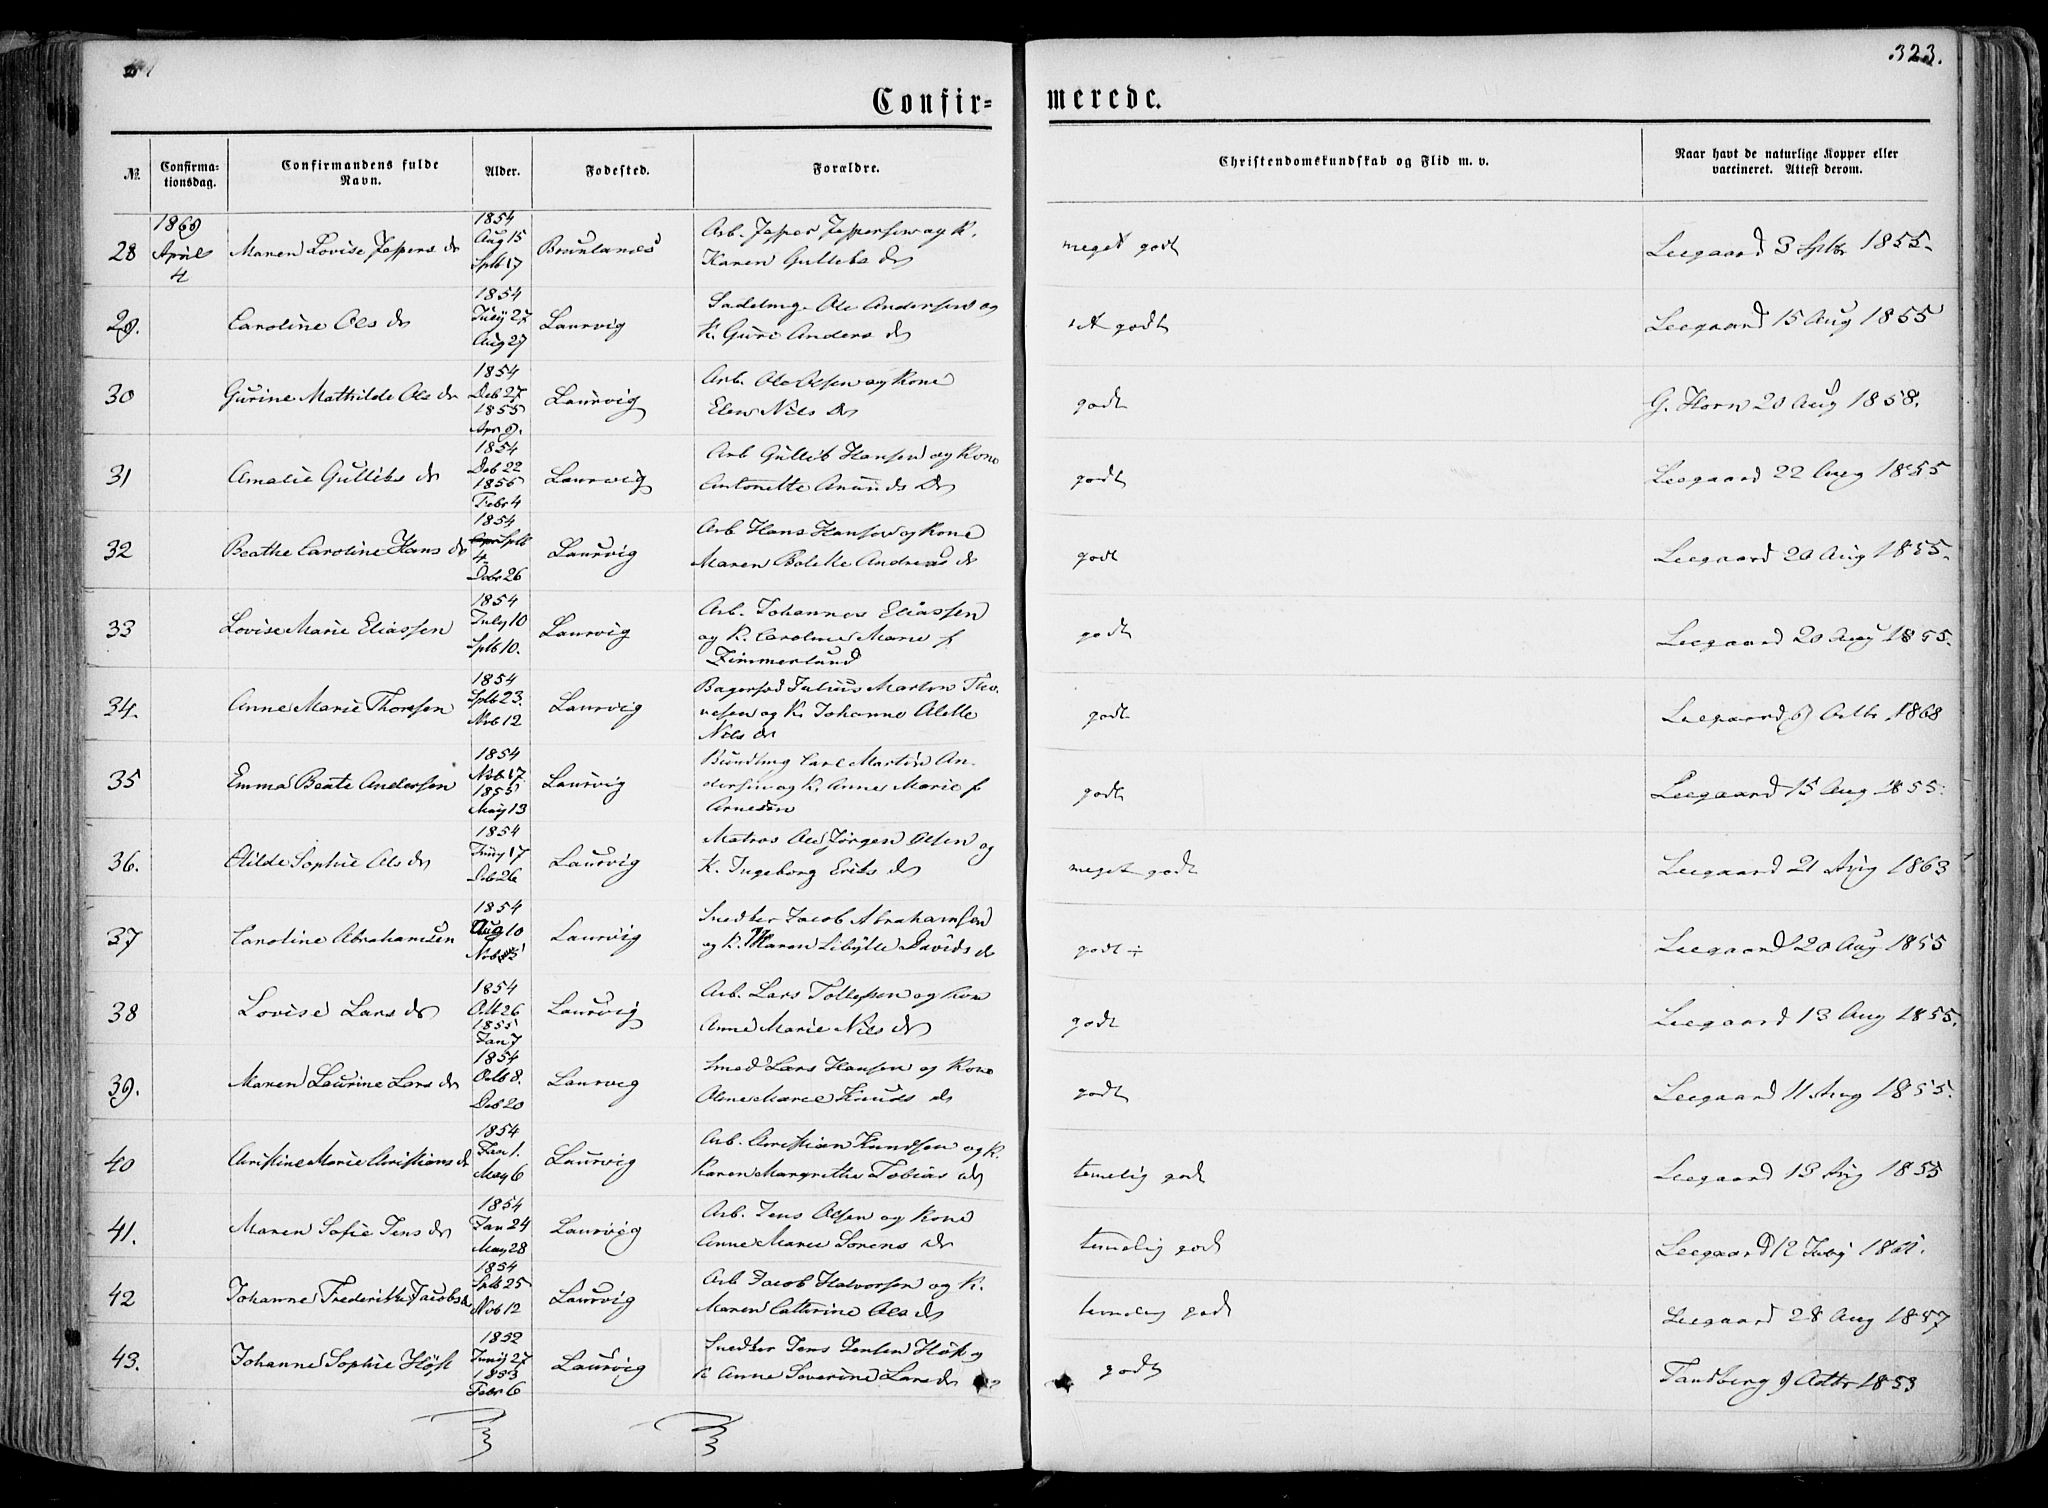 323.
Confir- merede.
№ Confirma-tionsdag. Confirmandens fulde Navn. Alder. Fødested. Forældre. Christendomskundskab og Flid m. v. Naar havt de naturlige Kopper eller vaccineret. Attest derom.
28 1869 April 4 Maren Lovise Jespers dr 1854 Aug 15 Sptb 17 Brunlanes Arb. Jesper Jespersen og K. Karen Gullebs dr meget godt Leegaard 3 Sptbr 1855.
29. Caroline Ols dr 1854 July 27 Aug 27 Laurvig Sadelmg. Ole Andersen og K. Guri Anders dr godt Leegaard 15 Aug 1855
30 Gurine Mathilde Ols dr 1854 Deb 27 1855 Apr 9. Laurvig Arb. Ole Olsen og Kone Elen Nils dr godt G. Horn 20 Aug 1858.
31 Amalie Gullebs dr 1854 Deb 22 1855 Febr 4 Laurvig Arb Gulleb Hansen og Kone Antonette Amunds dr godt Leegaard 22 Aug 1855
32 Beathe Caroline Hans dr 1854 Sptb 4 Debr 26 Laurvig Arb Hans Hansen og Kone Maren Bolette Andreas dr godt Leegaard 20 Aug 1855.
33 Lovise Marie Eliassen 1854 July 10 Sptb 10. Laurvig Arb. Johannes Eliassen og K. Caroline Marie f Zimmerlund godt Leegaard 20 Aug 1855.
34. Anne Marie Thoresen 1854 Sptb 23. Nvb 12 Laurvig Bagersvd Julius Martin Thoresen og K. Johanne Alette Nils dr godt Leegaard Octbr 1868
35 Emma Beate Andersen 1854 Nvb 17. 1855 May 13 Laurvig Bundtmg Carl Martin Andersen og K. Anne Marie f Arnesen godt Leegaard 15 Aug 1855.
36. Olilde Sophie Ols dr 1854 Juny 17 Deb 26 Laurvig Matros Ole Jørgen Olsen og K. Ingeborg Eriks dr meget godt Leegaard 21 Aug 1863
37 Caroline Abrahamsen 1854 Aug 10 Nvb Laurvig Snedker Jacob Abrahamsen og K. Maren Sibylle Davids dr godt ÷ Leegaard 20 Aug 1855
38 Lovise Lars dr 1854 Octb 26 1855 Jan 7 Laurvig Arb. Lars Tollefsen og Kone Anne Marie Nils dr godt Leegaard 13 Aug 1855.
39. Maren Laurine Lars dr 1854 Octb 8. Deb 20 Laurvig Smed Lars Hansen og Kone Oline Marie Knuds dr godt Leegaard 11 Aug 1855.
40 Christine Marie Christians dr 1854 Jan 1. May 6 Laurvig Arb. Christian Knudsen og K. Karen Margrethe Tobias dr temelig godt Leegaard 13 Aug 1855
41. Maren Sofie Jens dr 1854 Jan 24 May 28 Laurvig Arb. Jens Olsen og Kone Anne Marie Sorens dr temelig godt Leegaard 12 July
42 Johanne Frederikke Jacobs dr 1854 Sptb 25 Nvb 12 Laurvig Arb Jacob Halvorsen og K. Maren Cathrine Ols dr temelig godt Leegaard 28 Aug 1857
43. Johanne Sophie Höst 1852 Juny 27 1853 Febr 6 Laurvig Snedker Jens Jensen Höst og K Anne Severine Lars dr godt Tandberg 9 Octbr 1853